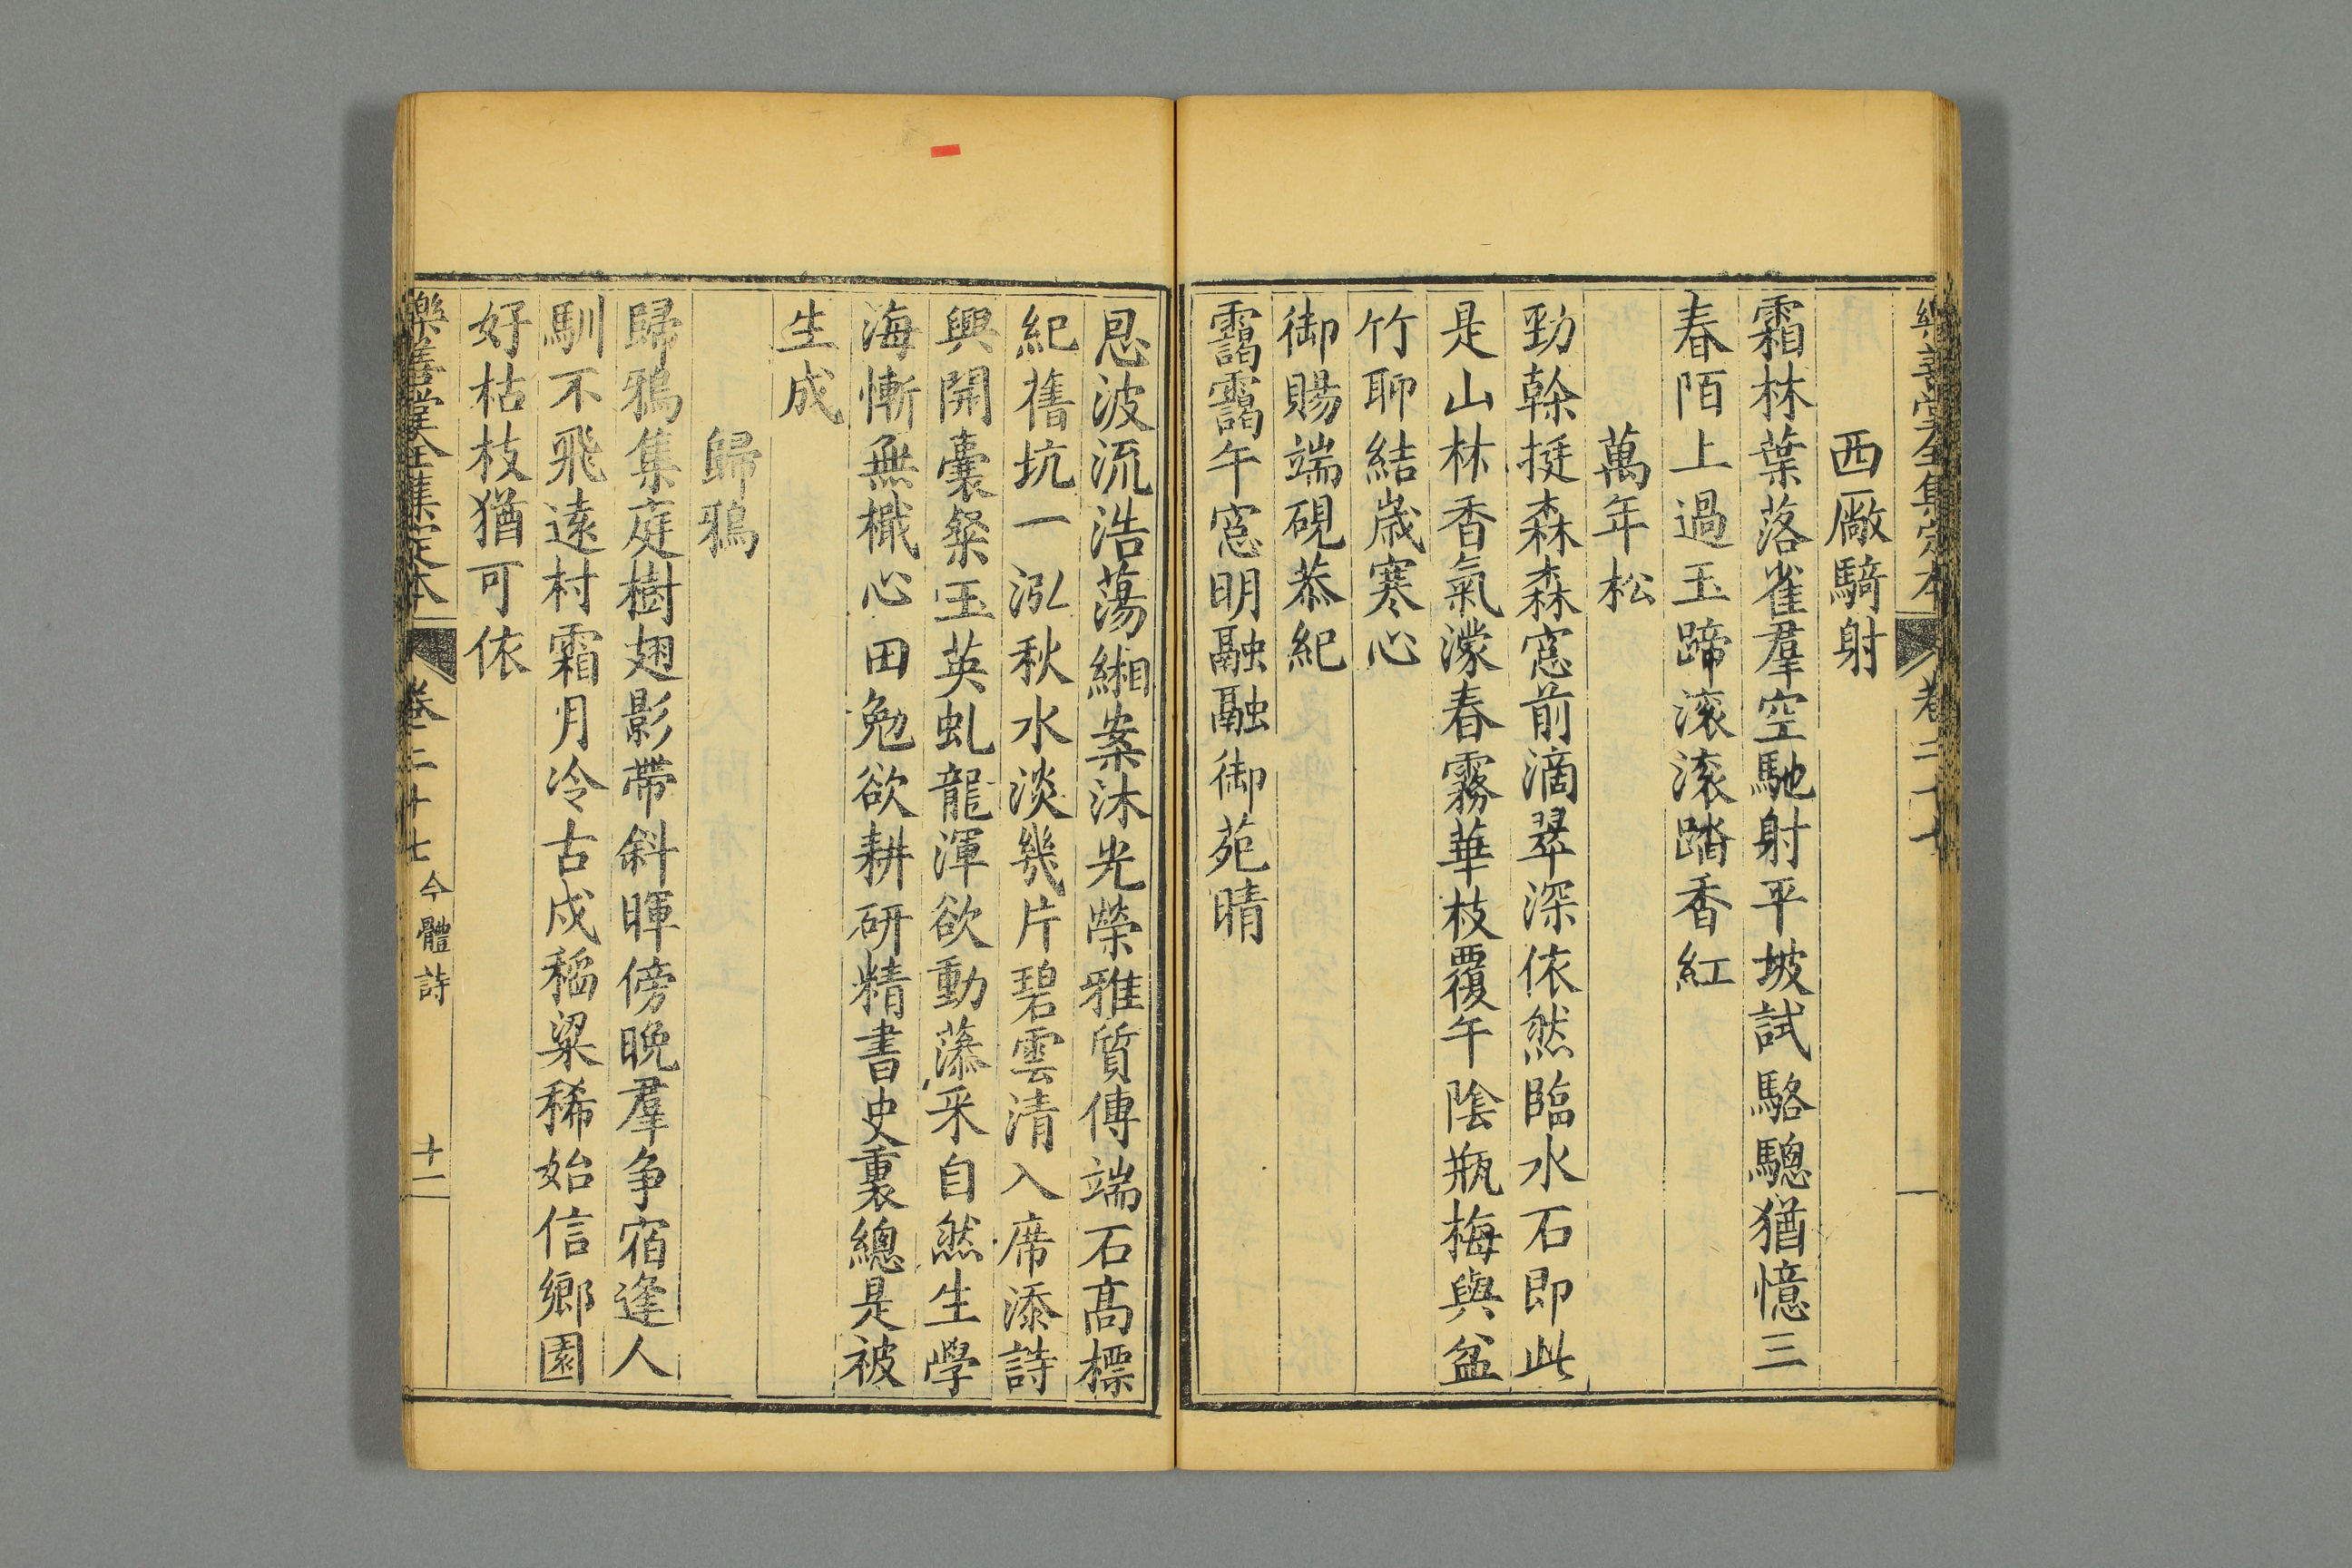 樂善堂全集定本 卷二十七
西廠騎射
霜林葉落雀羣空馳射平坡試駱驄猶憶三
春陌上過玉蹄滚滚踏香紅
萬年松
勁榦挺森森窓前滴翠深依然臨水石即此
是山林香氣濛春霧華枝覆午陰瓶梅與盆
竹聊結歳寒心
御賜端硯恭紀
靄靄午窓明融融御苑晴
恩波流浩蕩緗案沐光榮雅質傳端石高標
紀舊坑一泓秋水淡幾片碧雲清入席添詩
興開囊粲玉英虬龍渾欲動藻采自然生學
海慚無檝心田勉欲耕研精書史裏總是被
生成
歸鴉
歸鴉集庭樹翅影帶斜暉傍晚羣爭宿逢人
馴不飛逺村霜月冷古戍稻粱稀始信鄉園
好枯枝猶可依
樂善堂全集定本 卷二十七 今體詩 十二